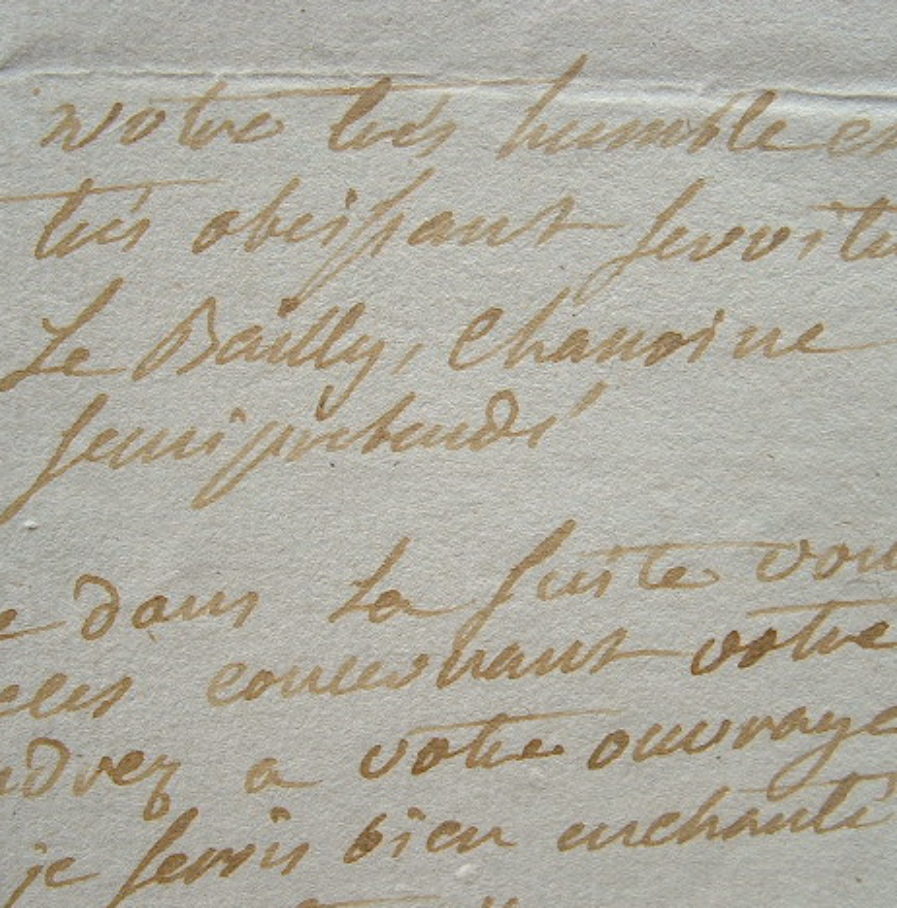 votre très humble et
très obeissant servite
Le Bailly, Chanoine
semiprebendé
e dans La suite vou
concernant votre
ndrez a votre ouvrage
je serois bien enchanté